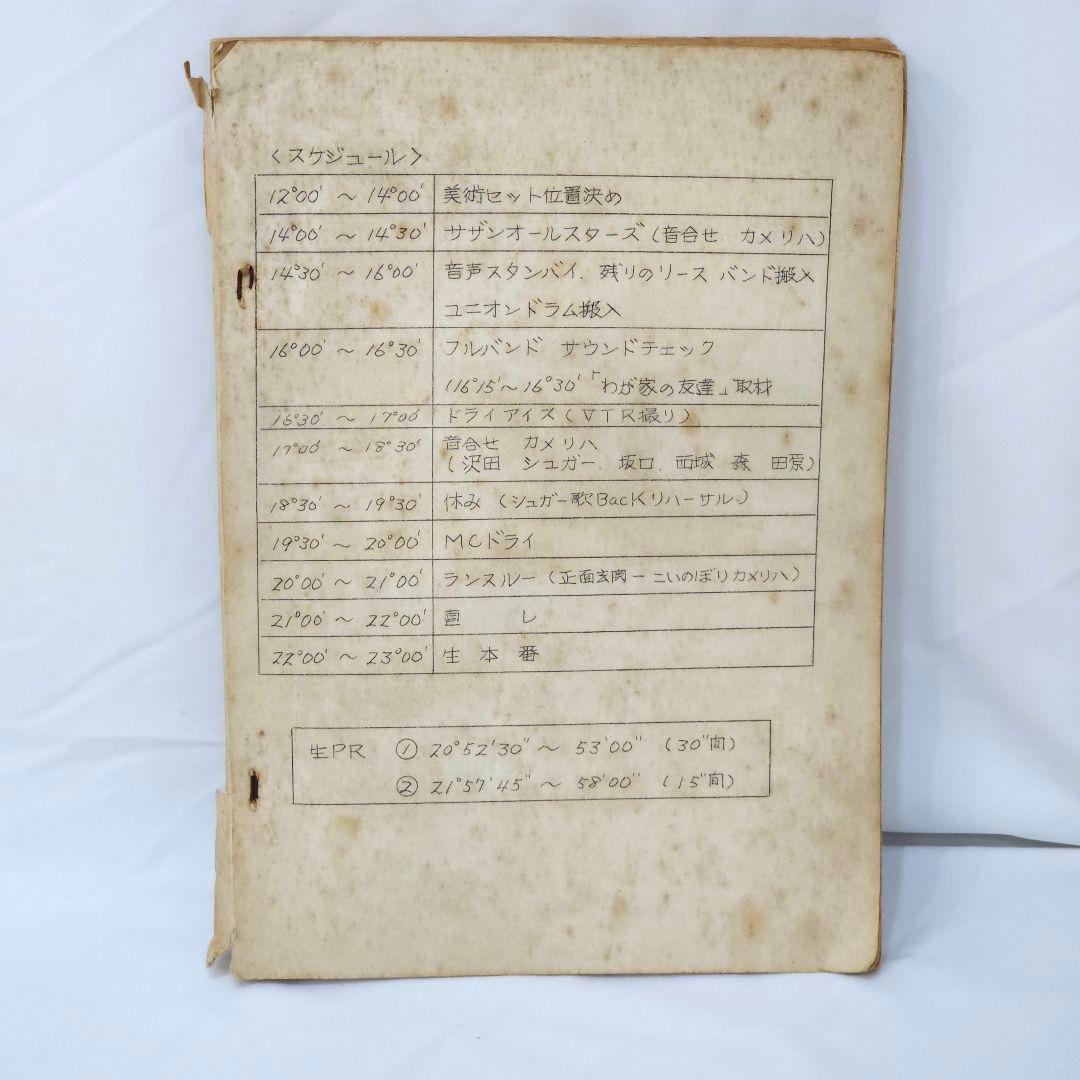 〈スケジュール〉
12°00' ～ 14°00' 美術セット位置決め
14°00' ～ 14°30' サザンオールスターズ (音合せ. カメリハ)
14°30' ～ 16°00' 音声スタンバイ. 残りのリース バンド搬入
ユニオンドラム搬入
16°00' ～ 16°30' フルバンド サウンドチェック
(16°15'～16°30'「わが家の友達」取材
16°30' ～ 17°00' ドライアイス (VTR撮り)
17°00' ～ 18°30' 音合せ カメリハ
(沢田 シュガー. 坂口. 西城 森 田原)
18°30' ～ 19°30' 休み (シュガー歌Backリハーサル)
19°30' ～ 20°00' MCドライ
20°00' ～ 21°00' ランスルー (正面玄関ーこいのぼりカメリハ)
21°00' ～ 22°00' 直 し
22°00' ～ 23°00' 生 本 番
生PR ① 20°52'30" ～ 53'00" (30"間)
② 21°57'45" ～ 58'00" (15"間)